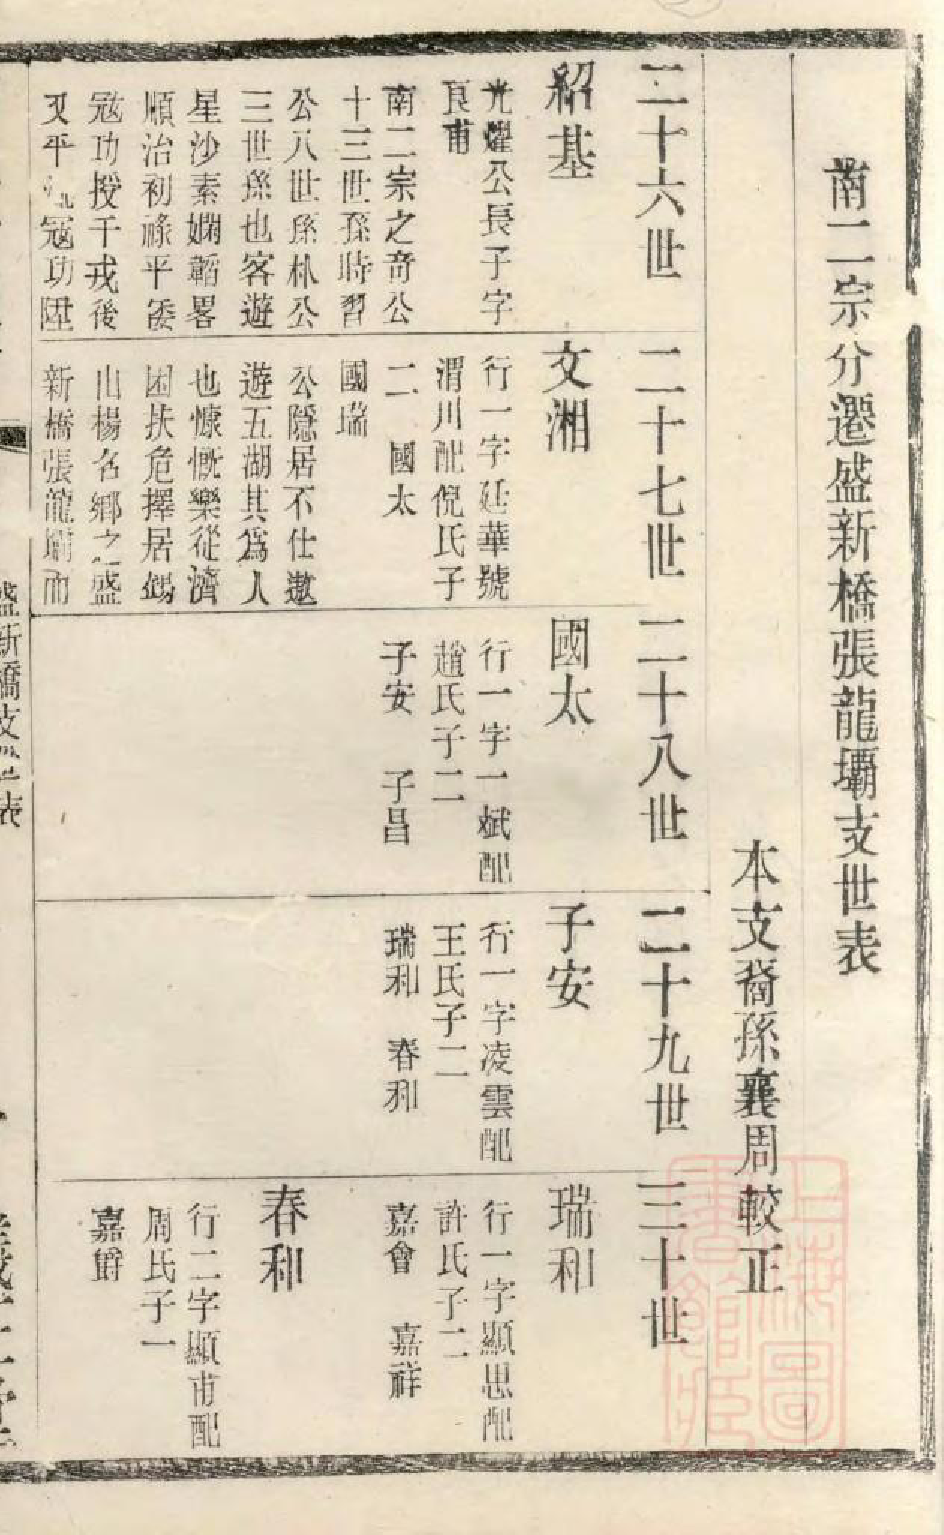 南二宗分遷盛新橋張龍壩支世表
本支裔孫襄周較正
二十六世
紹基
光燿公長子字
良甫
南二宗之奇公
十三世孫時習
公八世孫朴公
三世孫也客遊
星沙素嫻韜畧
順治初祿平
寇功授千戎後
又平 寇功陞
二十七世
文湘
行一字廷華號
渭川配倪氏子
二 國太
國瑞
公隱居不仕遨
遊五湖其為人
也慷慨樂從濟
困扶危擇居
山楊名鄉之盛
新橋張龍壩而
二十八世
國太
行一字一斌配
趙氏子二
子安 子昌
二十九世
子安
行一字凌雲配
王氏子二
瑞和 春和
三十世
瑞和
行一字顯思配
許氏子二
嘉會 嘉祥
春和
行二字顯甫配
周氏子一
嘉爵
盛新橋支世表